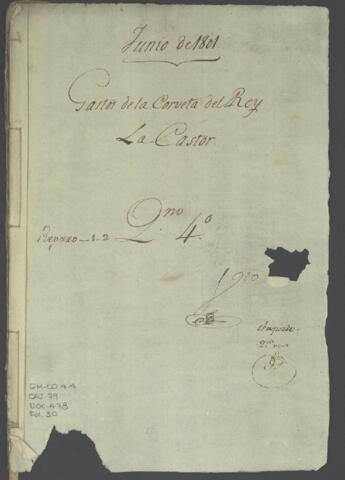 Junio de 1801.
Gastos de la Corveta del Rey
La Castor.
Reparo 1-2 Q.no 4.o
GM-CO 4-4
CAJ-79
DOC-478
Fol. 30